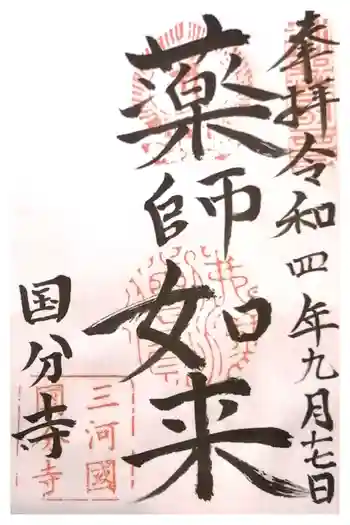 奉拝令和四年九月十七日
薬師如来
国分寺
三河國
國分寺